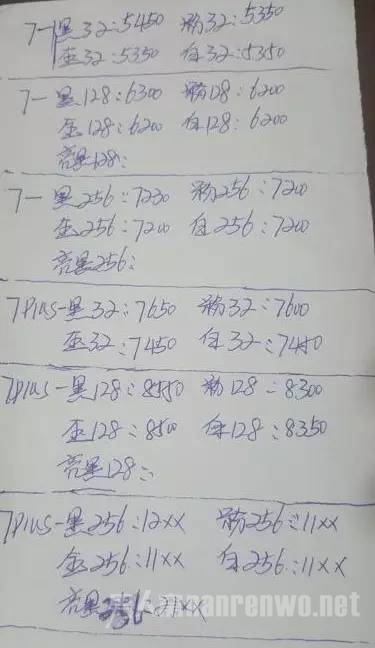 7一黑32:5450 粉32:5350
金32:5350 白32:5350
7一黑128:6300 粉128:6200
金128:6200 白128:6200
亮黑128:
7一黑256:7230 粉256:7200
金256:7200 白256:7200
亮黑256:
7Plus-黑32:7650 粉32:7600
金32:7450 白32:7450
7Plus-黑128: 粉128:8300
金128:8500 白128:8350
亮黑128:
7Plus-黑256:12xx 粉256:11xx
金256:11xx 白256:11xx
亮黑256:21xx
anrenwo.net